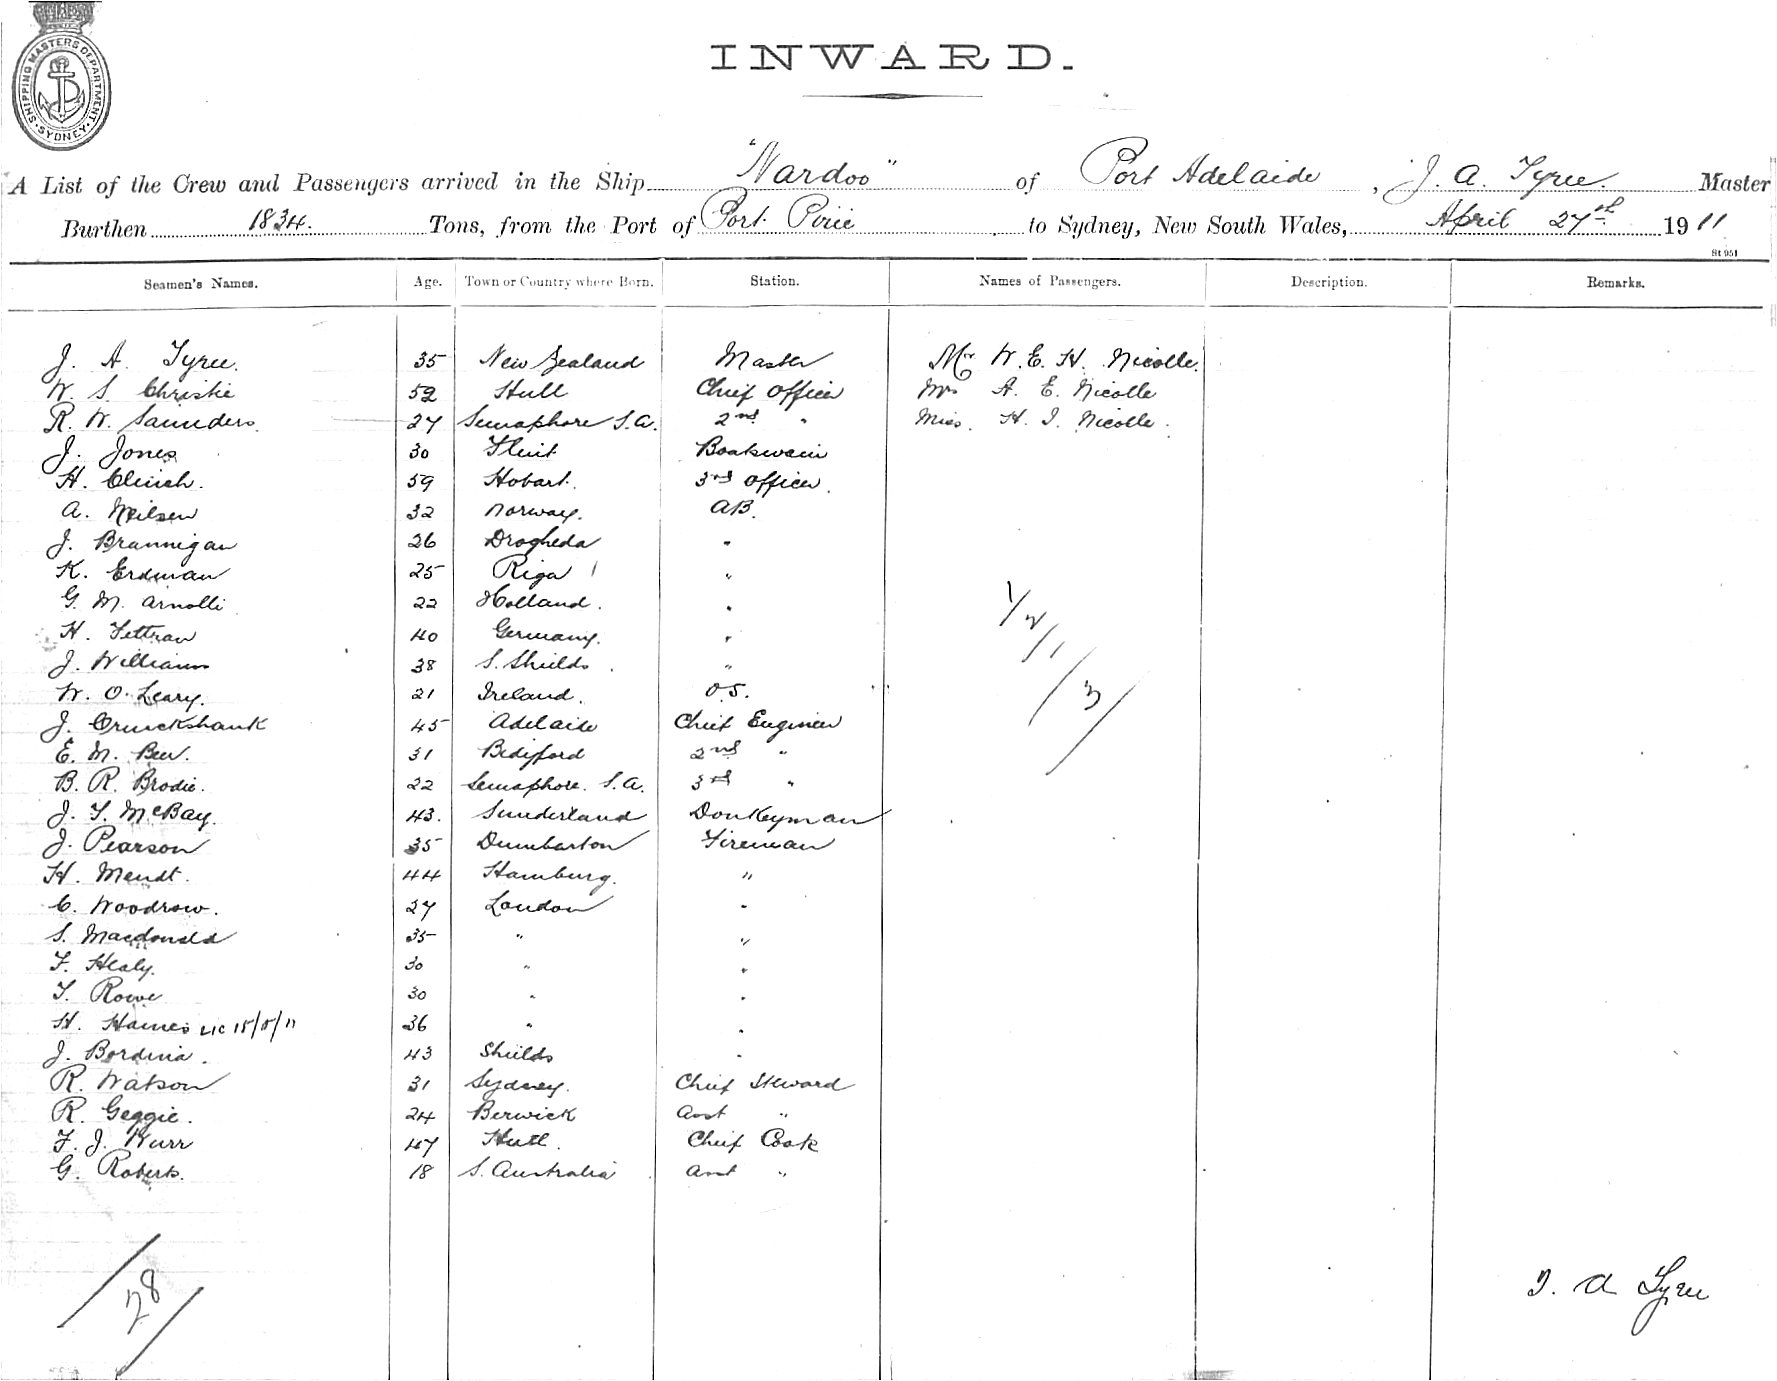 SHIPPING MASTERS DEPARTMENT. SYDNEY
INWARD.
A List of the Crew and Passengers arrived in the Ship "Nardoo" of Port Adelaide, J. A. Tyree. Master
Burthen 1834. Tons, from the Port of Port Pirie to Sydney, New South Wales, April 27th 1911
St 951
Seamen's Names. Age. Town or Country where Born. Station. Names of Passengers. Description. Remarks.
J. A. Tyree. 35 New Zealand Master Mr W. E. H. Nicolle.
W. S. Christie 52 Hull Chief Officer Mrs A. E. Nicolle
R. W. Saunders. 27 Semaphore S.A. 2nd " Miss. H. I. Nicolle.
J. Jones 30 Flint Boatswain
H. Clinch. 59 Hobart. 3rd Officer.
A. Neilsen 32 Norway. AB.
J. Brannigan 26 Drogheda "
K. Erdman 25 Riga "
G. M. Arnolli 22 Holland. "
H. Tettran 40 Germany. "
J. Williams 38 S. Shields. "
W. O. Leary. 21 Ireland. O.S.
J. Cruickshank 45 Adelaide Chief Engineer
E. M. Bew. 31 Bidifford 2nd "
B. R. Brodie. 22 Semaphore. S.A. 3rd "
J. T. McBay. 43. Sunderland Donkeyman
J. Pearson 35 Dumbarton Fireman
H. Mendt. 44 Hamburg. "
C. Woodrow. 27 London "
S. Macdonald 35 " "
T. Healy. 30 " "
T. Rowe 30 " "
H. Haines 15/5/11 36 " "
J. Bordina. 43 Shields "
R. Watson 31 Sydney. Chief Steward
R. Geggie. 24 Berwick Asst "
F. J. Kurr 47 Hull. Chief Cook
G. Roberts. 18 S. Australia Asst "
1/2/1
/3/
/28/
J. A Tyree